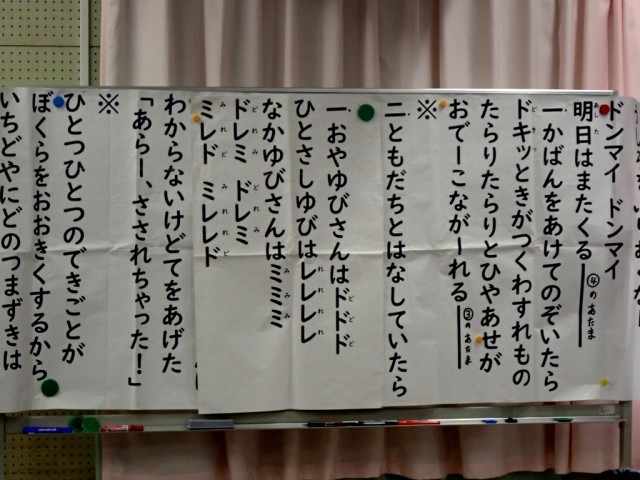 ドンマイ ドンマイ
明日はまたくる ④のあたま
一かばんをあけてのぞいたら
ドキッときがつくわすれもの
たらりたらりとひやあせが
おでーこながーれる ③のあたま
※
二ともだちとはなしていたら
一おやゆびさんはドドド
ひとさしゆびはレレレレ
なかゆびさんはミミミ
ドレミ ドレミ
ミレド ミレド
わからないけどてをあげた
「あらー、さされちゃった!」
※
ひとつひとつのできごとが
ぼくらをおおきくするから
いちどやにどのつまずきは